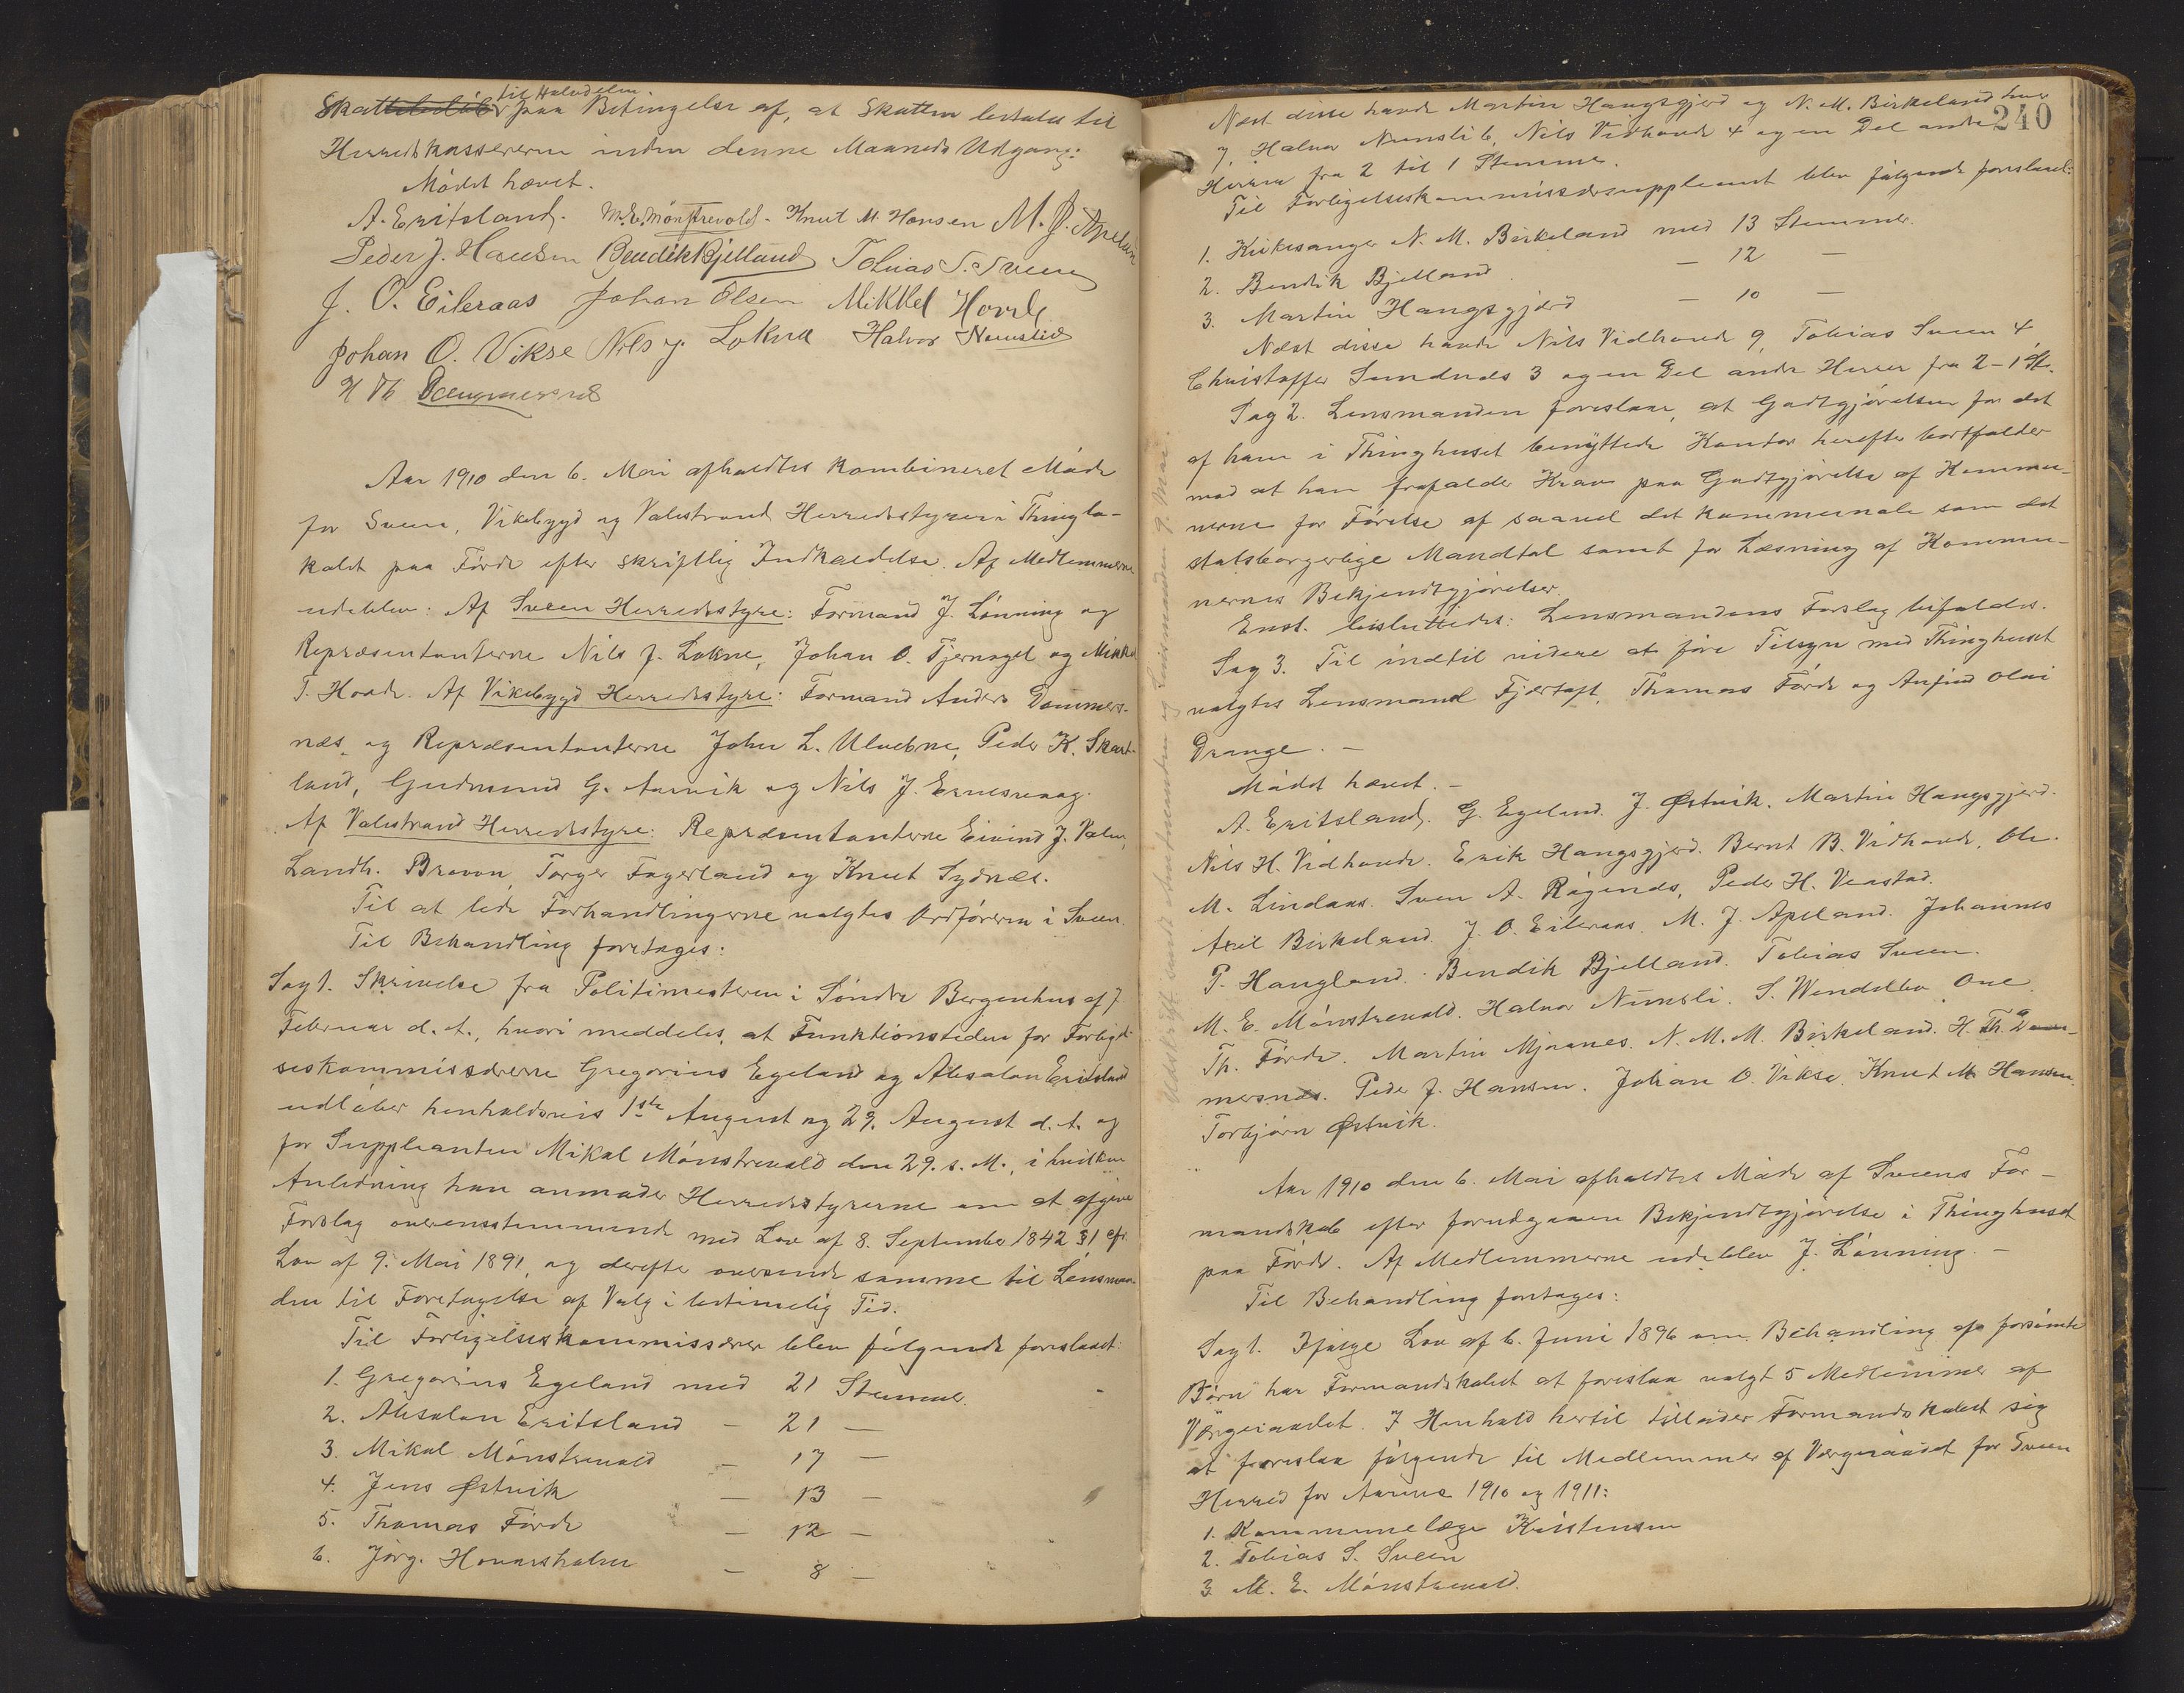 til Halvdelen
Skattebeløber paa Betingelse af, at Skatten betales til
Herredskassereren inden denne Maaneds Udgang.
Mödet hævet.
A. Eritsland. M.E. Mönstrevold. Knut M. Hansen M. J. Apeland
Peder J. Hansen Bendik Bjelland Tobias S. Sveen
J. O. Eileraas Johan Olsen Mikkel Hovde
Johan O. Vikse Nils J. Lokna Halvor Nemslid
H Th Dommersnes
Aar 1910 den 6. Mai afholdtes kombineret Möde
for Sveen, Vikebygd og Valestrand Herredsstyrer i Thinglo-
kalet paa Förde efter skriftlig Indkaldelse. Af Medlemmerne
udeblev: Af Sveen Herredsstyre: Formand J. Lönning og
Repræsentanterne Nils J. Lokne, Johan O. Tjernagel og Mikkel
T. Hovde. Af Vikebygd Herredsstyre: Formand Anders Dommers-
næs og Repræsentanterne John L. Ulvebne, Peder K. Skart-
land, Gudmund G. Aarvik og Nils J. Ernesvaag.
Af Valestrand Herredsstyre: Repræsentanterne Eivind J. Valen,
Landh. Brovon, Torger Fagerland og Knut Sydnæs.
Til at lede Forhandlingerne valgtes Ordföreren i Sveen.
Til Behandling foretages:
Sag 1. Skrivelse fra Politimesteren i Söndre Bergenhus af 7.
Februar d. A., hvori meddeles, at Funktionstiden for Forligel-
seskommissærerne Gregorius Egeland og Absalon Eritsland
udlöber henholdsvis 1ste August og 29. August d. A. og
for Suppleanten Mikal Mönstrevold den 29. s. M., i hvilken
Anledning han anmoder Herredsstyrerne om at afgive
Forslag overensstemmende med Lov af 8. September 1842 § 1 cfr.
Lov af 9. Mai 1891, og derefter oversende samme til Lensman-
den til Foretagelse af Valg i betimelig Tid.
Til Forligelseskommissærer blev fölgende foreslaaet:
1. Gregorius Egeland med 21 Stemmer.
2. Absalon Eritsland - 21 -
3. Mikal Mönstrevold - 17 -
4. Jens Østvik - 13 -
5. Thomas Förde - 12 -
6. Jörg. Hovarsholm - 8 -
240
Næst disse havde Martin Haugsgjerd og N. M. Birkeland hver
7, Halvor Nemsli 6, Nils Vidhovde 4 og en Del andre
Herrer fra 2 til 1 Stemme.
Til Forligelseskommissærsuppleant blev fölgende foreslaaet:
1. Kirkesanger N. M. Birkeland med 13 Stemmer.
2. Bendik Bjelland - 12 -
3. Martin Haugsgjerd - 10 -
Næst disse havde Nils Vidhovde 9, Tobias Sveen 4
Christoffer Sundnæs 3 og en Del andre Herrer fra 2-1 St.
Sag 2. Lensmanden foreslaar, at Godtgjörelsen for det
af ham i Thinghuset benyttede Kontor herefter bortfalder
mod at han frafalder Krav paa Godtgjörelse af Kommu-
nerne for Förelse af saavel det kommunale som det
statsborgerlige Mandtal samt for Læsning af Kommu-
nernes Bekjendtgjörelser.
Enst. besluttedes: Lensmandens Forslag bifaldes.
Sag 3. Til indtil videre at före Tilsyn med Thinghuset
valgtes Lensmand Fjærtoft, Thomas Förde og Anfind Olai
Drange. -
Mödet hævet. -
A. Eritsland. G. Egeland. J. Østvik. Martin Haugsgjerd.
Nils H. Vidhovde. Erik Haugsgjerd. Bernt B. Vidhovde. Ole
M. Lindaas. Sven A. Rögenæs, Peder H. Veastad.
Axel Birkeland. J. O. Eileraas. M. J. Apeland. Johannes
P. Haugland. Bendik Bjelland. Tobias Sveen.
M. E. Mönstrevold. Halvor Nemsli. S. Wendelbo Ove
Th. Förde. Martin Mjaanes. N. M. M. Birkeland. H. Th. Dom-
mersnæs. Peder J. Hansen. Johan O. Vikse. Knut M Hansen.
Torbjörn Østvik.
Aar 1910 den 6. Mai afholdtes Möde af Sveens For-
mandskab efter forudgaaen Bekjendtgjörelse i Thinghuset
paa Förde. Af Medlemmerne udeblev J. Lönning. -
Til Behandling foretages:
Sag 1. Ifölge Lov af 6. Juni 1896 om Behandling af forsömte
Börn har Formandskabet at foreslaa valgt 5 Medlemmer af
Værgeraadet. I Henhold hertil tillader Formandskabet sig
at foreslaa fölgende til Medlemmer af Værgeraadet for Sveen
Herred for Aarene 1910 og 1911:
1. Kommunelæge Kristensen
2. Tobias S. Sveen
3. M. E. Mönstrevold.
Udskrift sendt Amtmanden og Lensmanden 9. Mai.